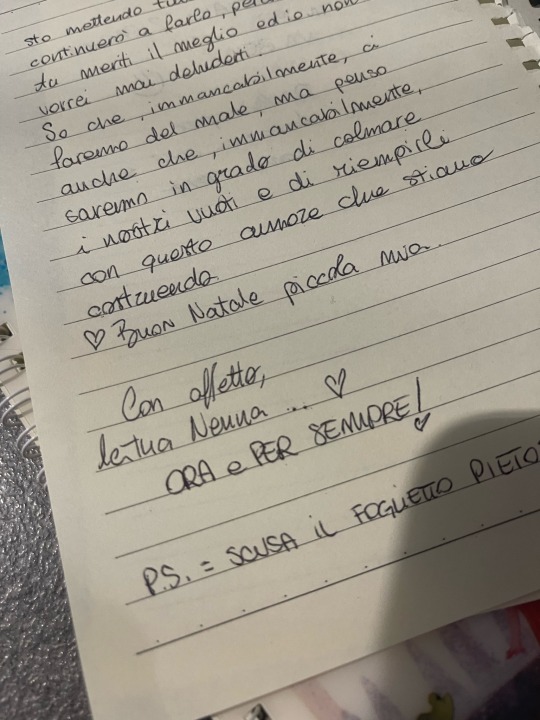 sto mettendo
continuerò a farlo,
tu meriti il meglio ed io non
vorrei mai deluderti.
So che, immancabilmente, ci
faremo del male, ma penso
anche che, immancabilmente,
saremo in grado di colmare
i nostri vuoti e di riempirli
con questo amore che stiamo
costruendo.
♡ Buon Natale piccola mia.
Con affetto,
la tua Nenna ... ♡
ORA e PER SEMPRE! ♡
P.S. = SCUSA IL FOGLIETTO